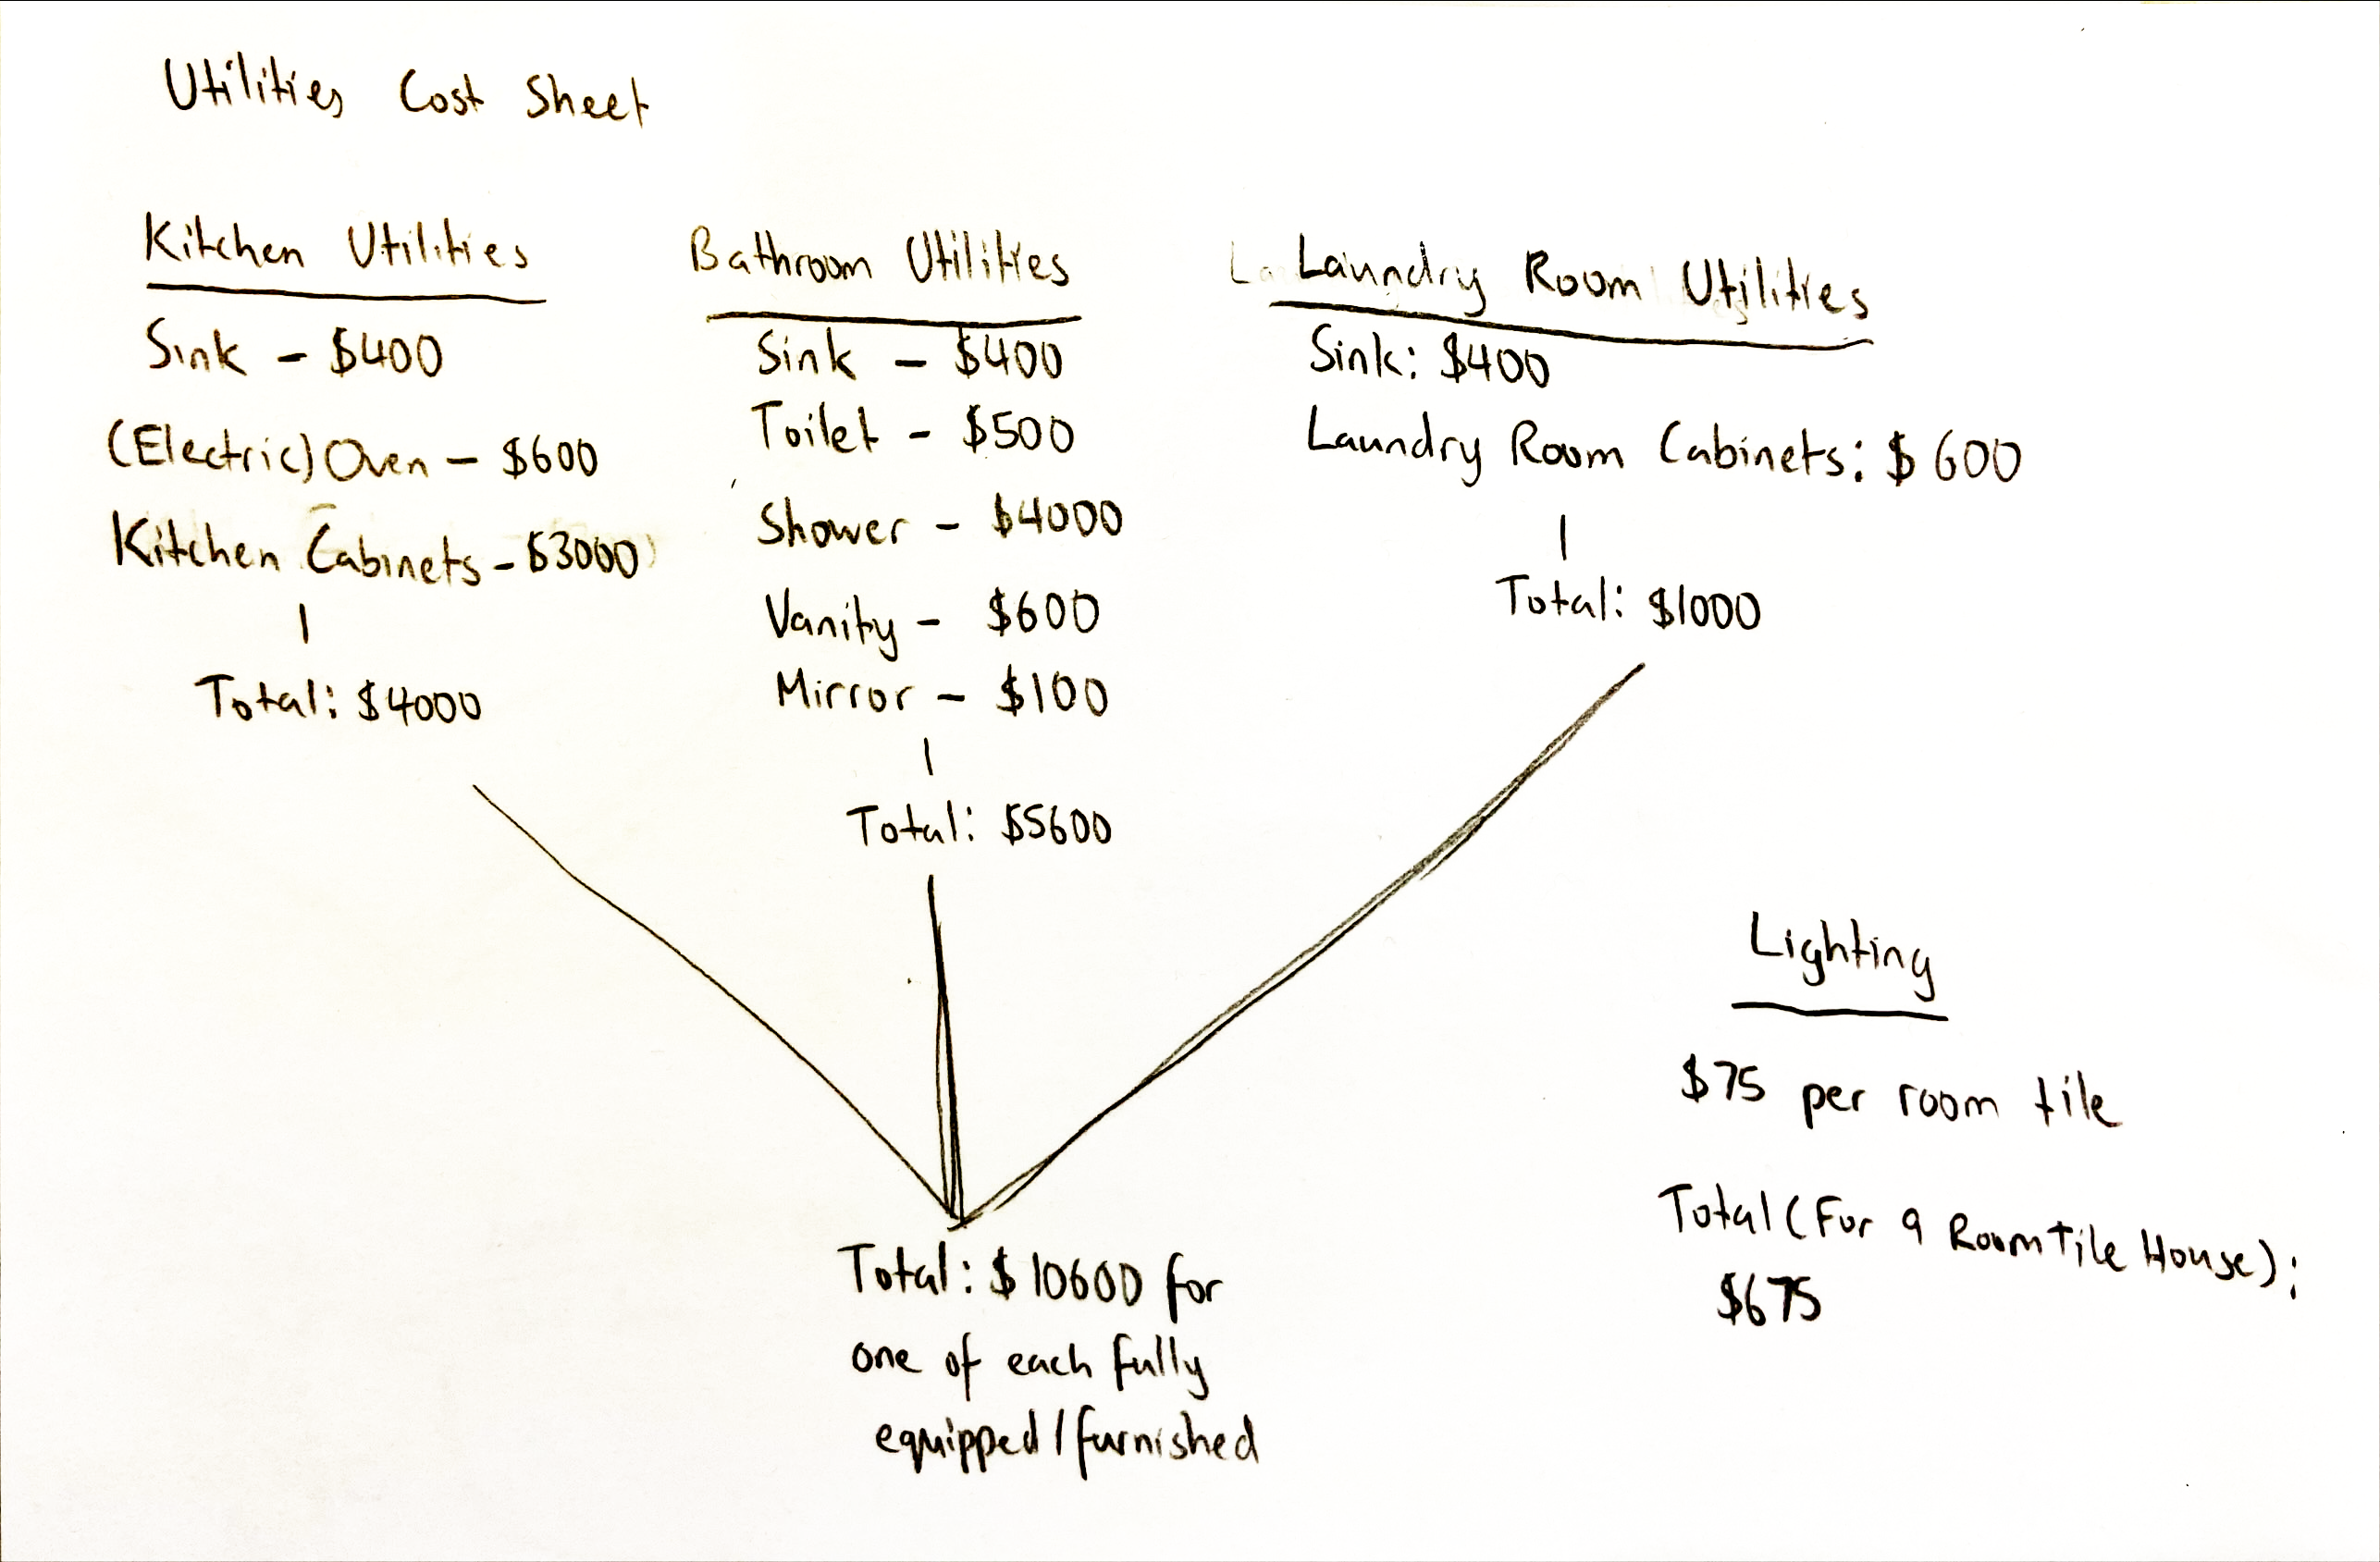 Utilities Cost Sheet
Kitchen Utilities
Sink - $400
(Electric) Oven - $600
Kitchen Cabinets - $3000
Total: $4000
Bathroom Utilities
Sink - $400
Toilet - $500
Shower - $4000
Vanity - $600
Mirror - $100
Total: $5600
Laundry Room Utilities
Sink: $400
Laundry Room Cabinets: $600
Total: $1000
Total: $10600 for
one of each fully
equipped/furnished
Lighting
$75 per room tile
Total (For 9 Room Tile House):
$675